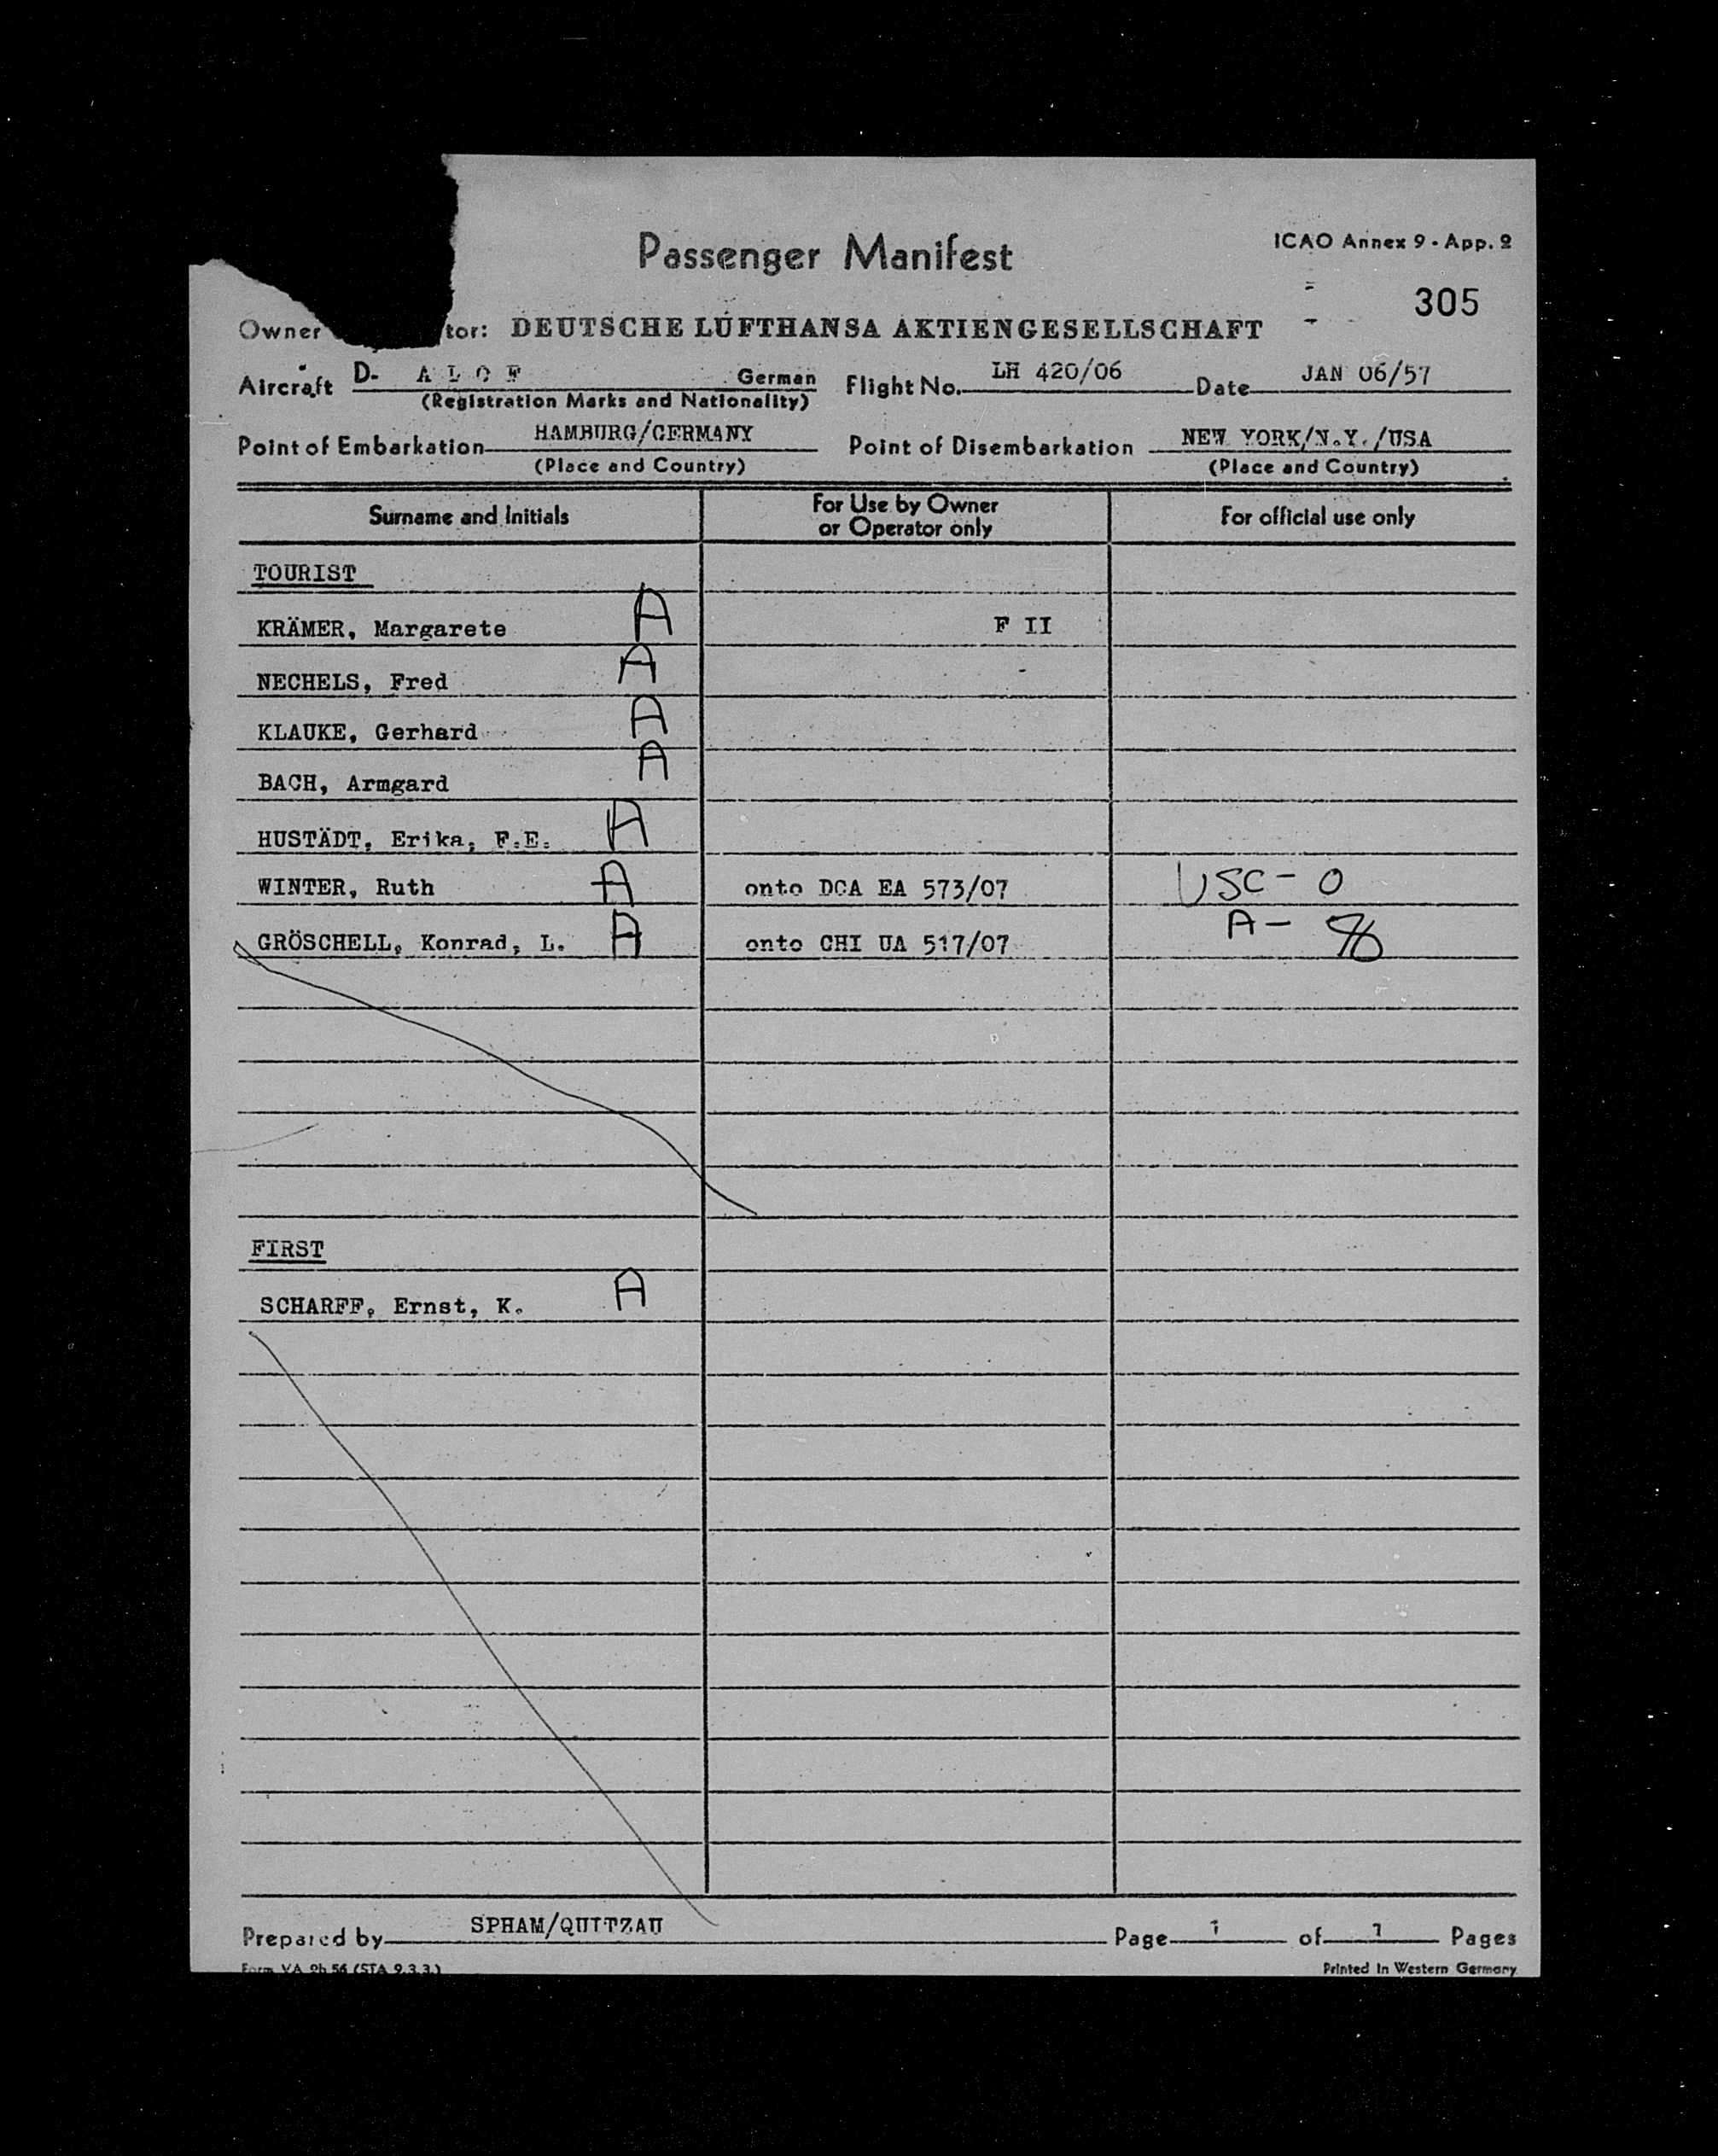 Passenger Manifest
ICAO Annex 9 - App. 2
305
Owner tor: DEUTSCHE LUFTHANSA AKTIENGESELLSCHAFT
Aircraft D- A L O F German Flight No. LH 420/06 Date JAN 06/57
(Registration Marks and Nationality)
Point of Embarkation HAMBURG/GERMANY Point of Disembarkation NEW YORK/N.Y./USA
(Place and Country) (Place and Country)
Surname and Initials For Use by Owner or Operator only For official use only
TOURIST
KRÄMER, Margarete A F II
NECHELS, Fred A
KLAUKE, Gerhard A
BACH, Armgard A
HUSTÄDT, Erika, F.E. A
WINTER, Ruth A onto DCA EA 573/07 USC - 0
GRÖSCHELL, Konrad, L. A onto CHI UA 517/07 A - 8
FIRST
SCHARFF, Ernst, K. A
Prepared by SPHAM/QUITZAU Page 1 of 1 Pages
Form VA 9b 56 (STA 9.3.3.) Printed in Western Germany